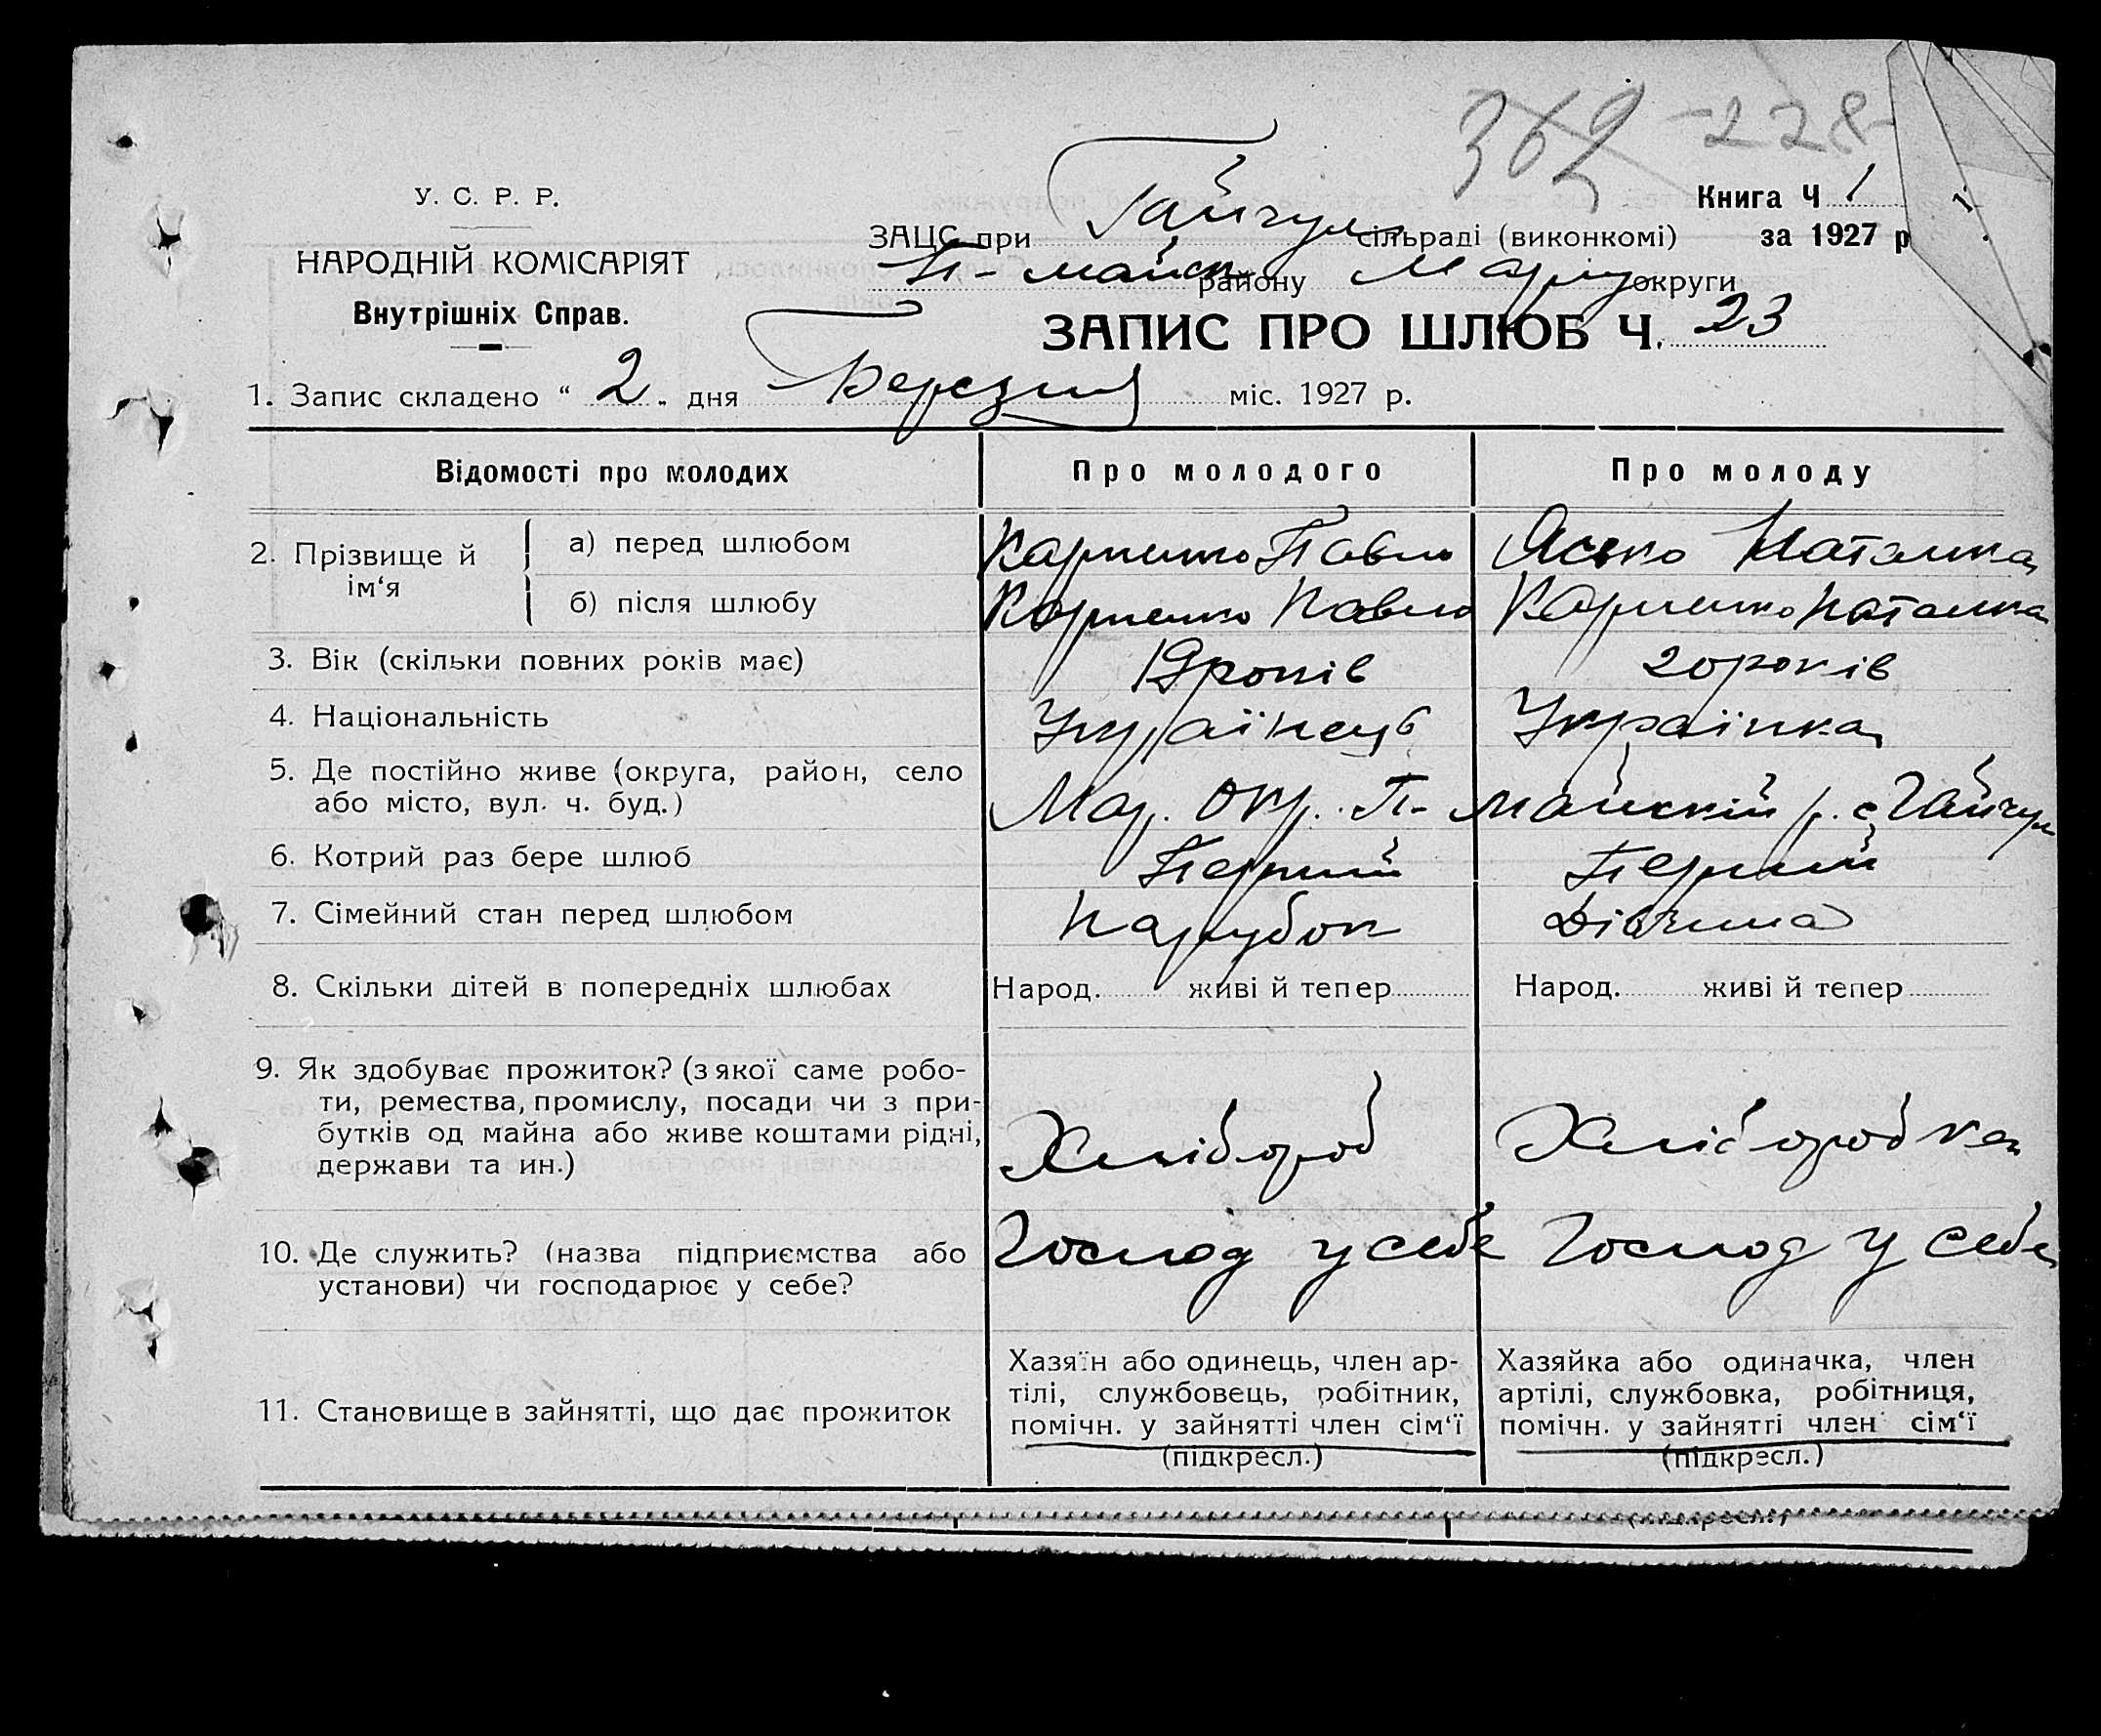 369 - 228 -
У. С. Р. Р.
НАРОДНІЙ КОМІСАРІЯТ
Внутрішніх Справ.
Книга Ч 1
ЗАЦС при Гайчул сільраді (виконкомі) за 1927 р
П-майск району Маріу округи
ЗАПИС ПРО ШЛЮБ Ч. 23
1. Запис складено “ 2 „ дня Березня міс. 1927 р.
Відомості про молодих Про молодого Про молоду
2. Прізвище й ім‘я
а) перед шлюбом Карпенко Павло Ясько Наталка
б) після шлюбу Карпенко Павло Карпенко Наталка
3. Вік (скільки повних років має) 19 років 20 років
4. Національність Українець Українка
5. Де постійно живе (округа, район, село
або місто, вул. ч. буд.) Мар. Окр. П-майский р. с Гайчул
6. Котрий раз бере шлюб Перший Перший
7. Сімейний стан перед шлюбом Парубок Дівчина
8. Скільки дітей в попередніх шлюбах Народ. живі й тепер Народ. живі й тепер
9. Як здобуває прожиток? (з якої саме робо-
ти, ремества, промислу, посади чи з при-
бутків од майна або живе коштами рідні,
держави та ин.) Хлібороб Хліборобка
10. Де служить? (назва підприємства або
установи) чи господарює у себе? Господ у себе Господ у себе
11. Становище в зайнятті, що дає прожиток
Хазяїн або одинець, член ар-
тілі, службовець, робітник,
помічн. у зайнятті член сім‘ї
(підкресл.)
Хазяйка або одиначка, член
артілі, службовка, робітниця,
помічн. у зайнятті член сім‘ї
(підкресл.)